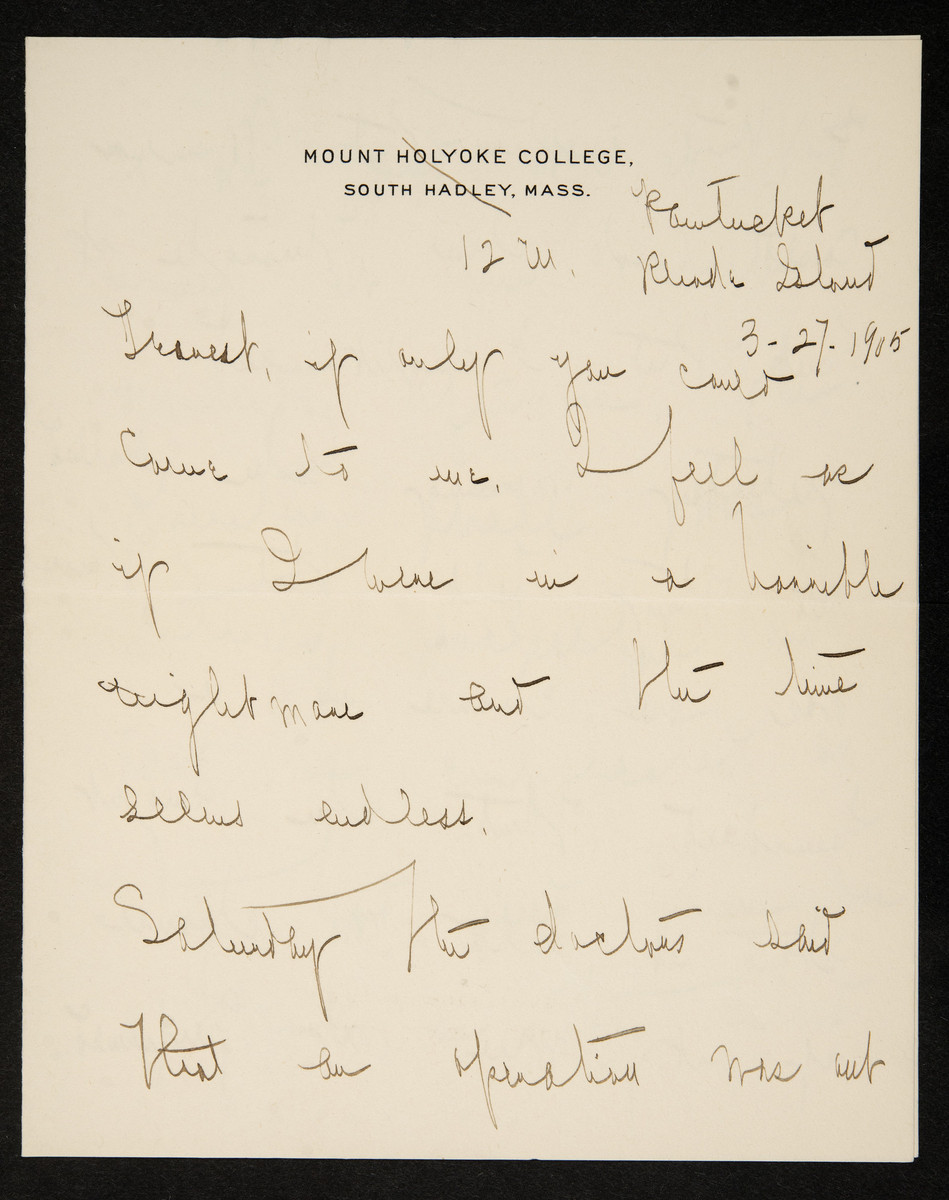 MOUNT HOLYOKE COLLEGE,
SOUTH HADLEY, MASS.
Pawtucket
12 M. Rhode Island
3-27-1905
Dearest, if only you could
come to me. I feel as
if I were in a horrible
nightmare and the time
seems endless.
Saturday the doctors said
that an operation was out